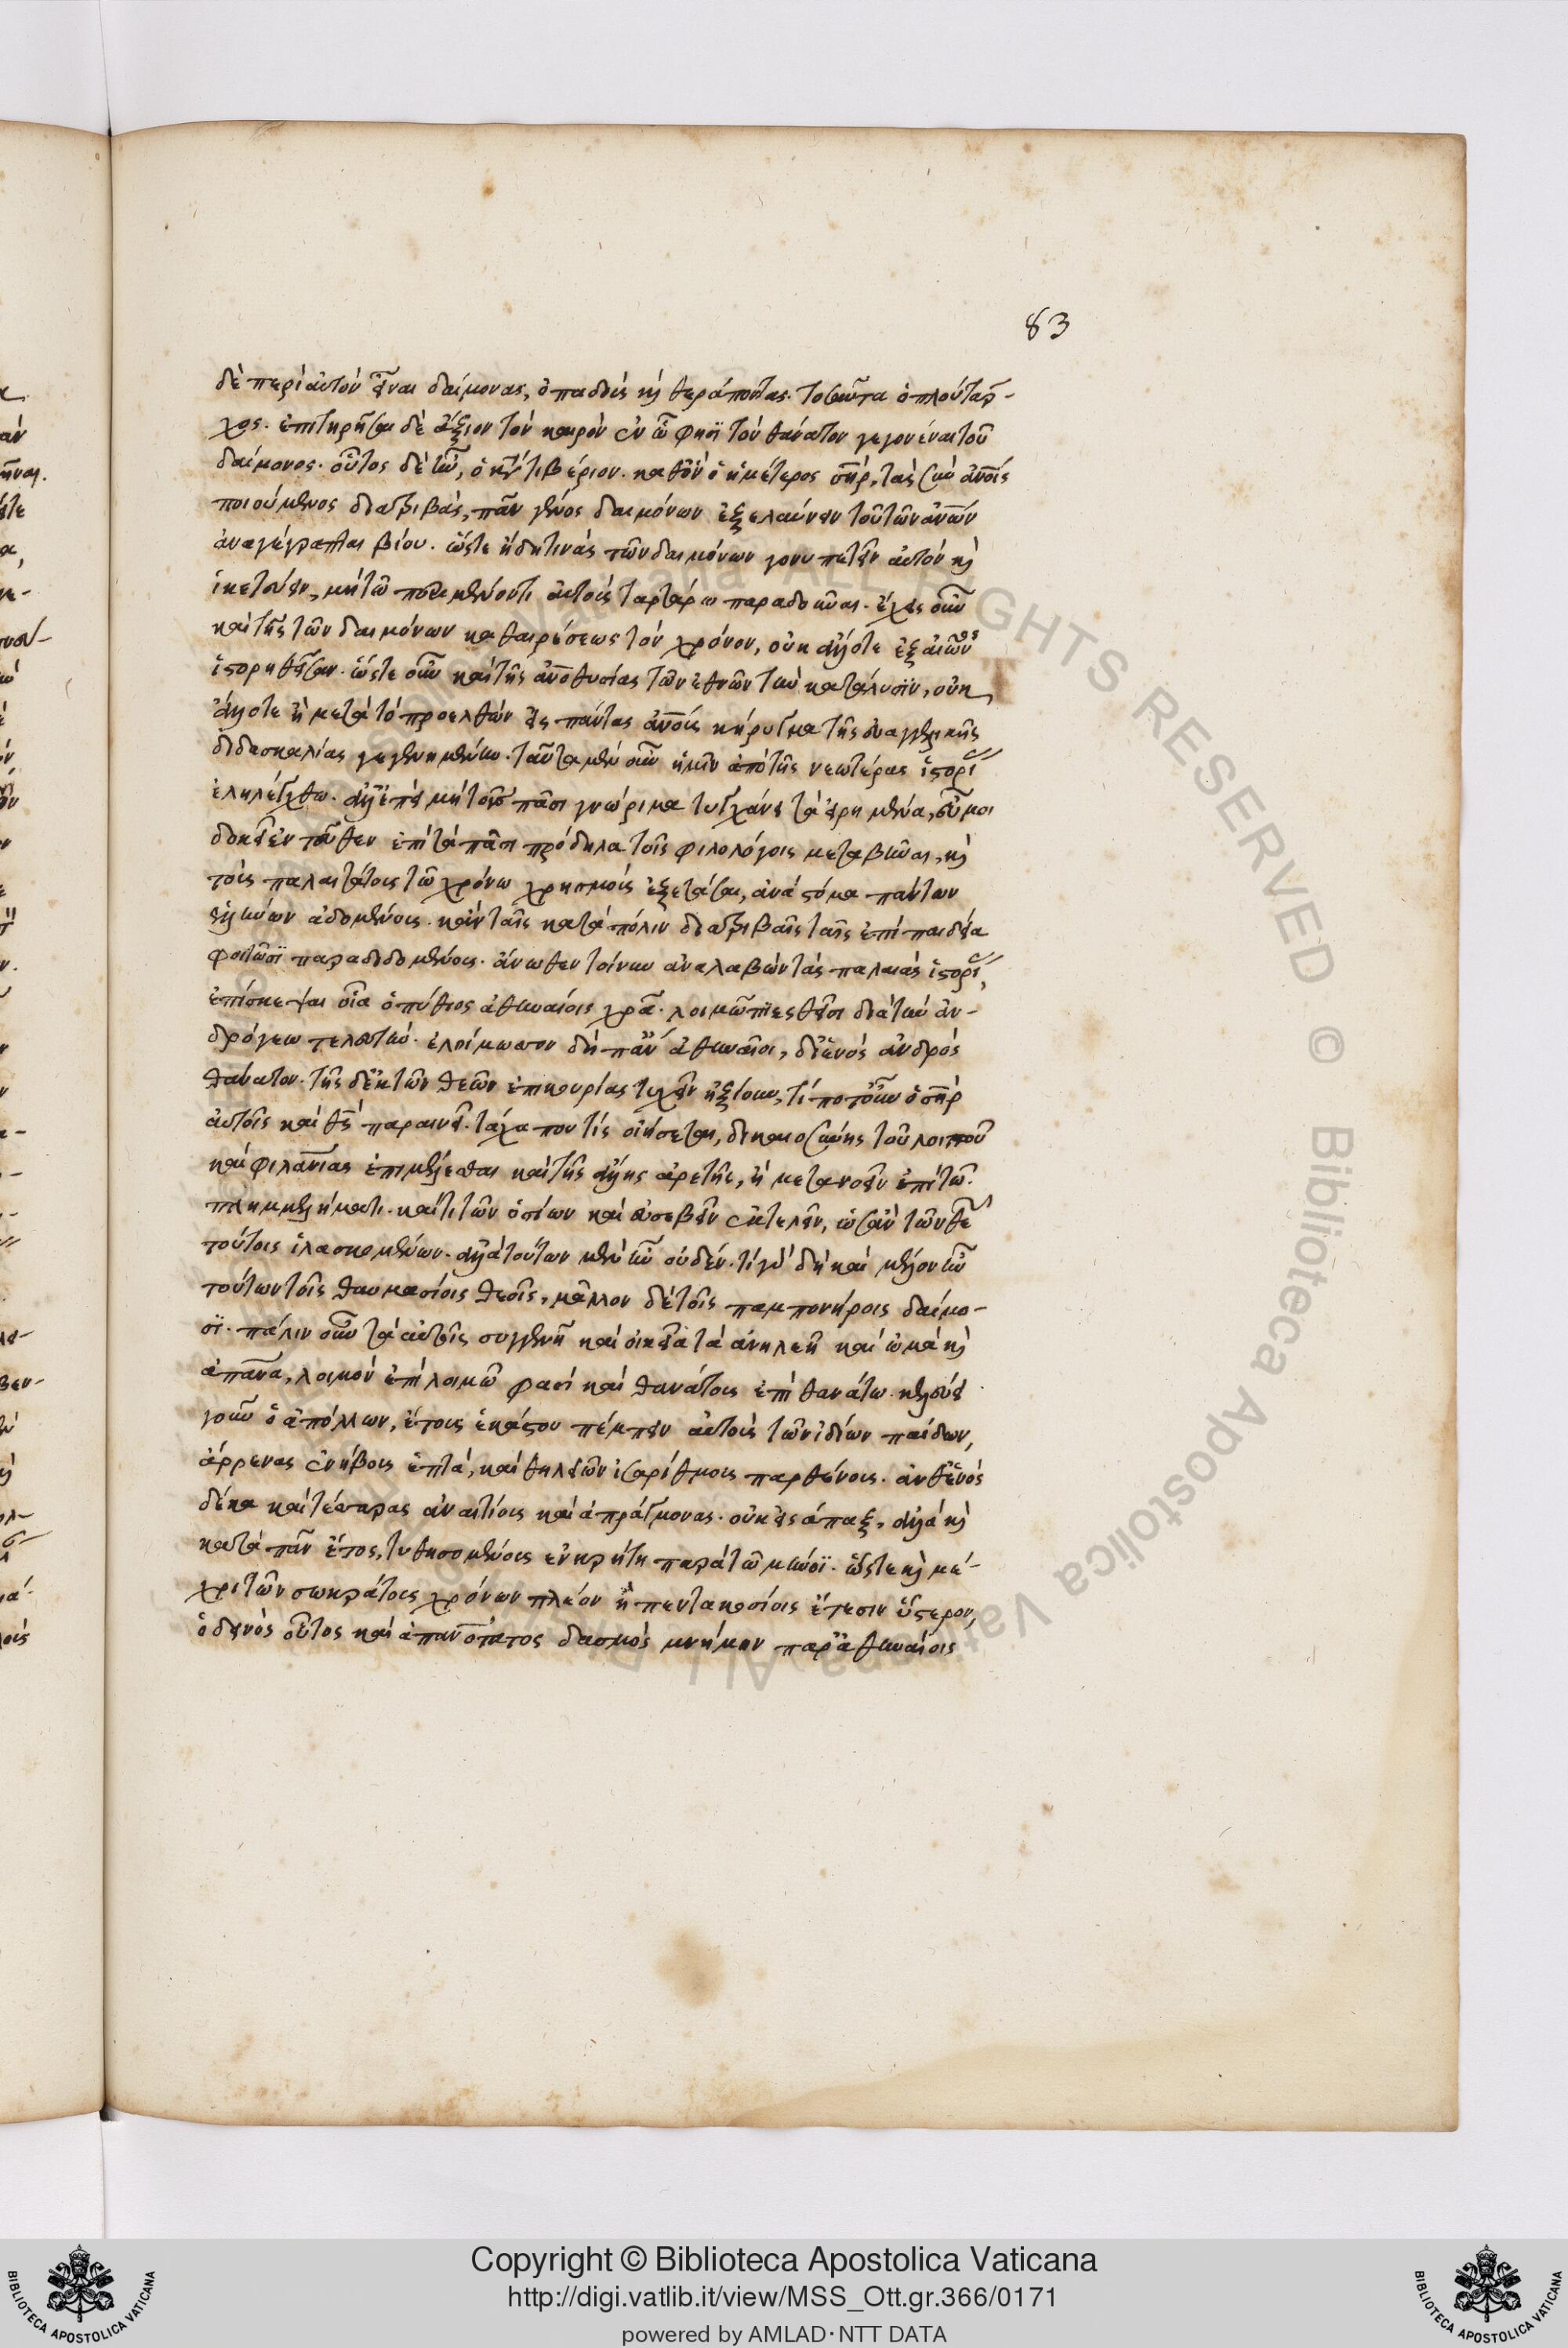 83
δὲ περὶ αὐτὸν εἶναι δαίμονας, ὀπαδοὺς κỳ θεράποντας. τοσαῦτα ὁ πλούταρ-
χος. ἐπιτηρῆσαι δὲ ἄξιον τὸν καιρὸν ἐν ᾧ φησὶ τὸν θάνατον γεγονέναι τοῦ
δαίμονος. οὗτος δὲ ἦν, ὁ κατὰ τιβέριον. καθ' ὃν ὁ ἡμέτερος σηρ, τὰς σὺν ἀνοις
ποιούμενος διατριβὰς, πᾶν γένος δαιμόνων ἐξελαύνειν τοῦ τῶν ἀνων
ἀναγέγραπται βίου. ὥστε ἤδη τινὰς τῶν δαιμόνων γονυπετεῖν αὐτὸν κỳ
ἱκετεύειν, μὴ τῷ περιμένοντι αὐτοὺς ταρτάρω παραδοῦναι. ἔχεις οὖν
καὶ τῆς τῶν δαιμόνων καθαιρέσεως τὸν χρόνον, οὐκ ἄλλοτε ἐξ αἰῶνος
ἱστορηθεῖσαν. ὥστε οὖν καὶ τῆς ἀνοθυσίας τῶν ἐθνῶν τὴν κατάλυσιν, οὐκ
ἄλλοτε ἢ μετὰ τὸ προελθὸν εἰς πάντας ἀνους κήρυγμα τῆς εὐαγγελικῆς
διδασκαλίας γεγενημένην. ταῦτα μὲν οὖν ἡμῖν ἀπὸ τῆς νεωτέρας ἱστορί
ἐληλέγχθω. ἀλλ' ἐπεὶ μὴ τοῖς πᾶσι γνώριμα τυγχάνει τὰ εἰρημένα, εὖ μοι
δοκεῖ ἐντεῦθεν ἐπὶ τὰ πᾶσι πρόδηλα τοῖς φιλολόγοις μεταβῆναι, κỳ
τοὺς παλαιτάτους τῷ χρόνω χρησμοὺς ἐξετάσαι, ἀνὰ στόμα πάντων
ἑλλήνων ἀδομένους. κἀν ταῖς κατὰ πόλιν διατριβαῖς τοῖς ἐπὶ παιδεία
φοιτῶσι παραδιδομένους. ἄνωθεν τοίνυν ἀναλαβὼν τὰς παλαιὰς ἱστορί,
ἐπίσκεψαι οἷα ὁ πύθιος ἀθηναίοις χρᾶ. λοιμῷ πιεσθεῖσι διὰ τὴν ἀν-
δρόγεω τελευτήν. ἐλοίμωττον δὴ πάντ ἀθηναῖοι, δι' ἑνὸς ἀνδρὸς
θάνατον. τῆς δ' ἐκ τῶν θεῶν ἐπικουρίας τυχεῖν ἠξίουν, τί ποτ' οὖν ὁ σηρ
αὐτοῖς καὶ θς παραινεῖ. τάχα που τίς οἰήσεται, δικαιοσύνης τοῦ λοιποῦ
καὶ φιλανιας ἐπιμελεῖσθαι καὶ τῆς ἄλλης ἀρετῆς, ἢ μετανοεῖν ἐπὶ τῷ
πλημμελήματι. καί τι τῶν ὁσίων καὶ εὐσεβῶν ἐκτελεῖν, ὡσὰν τῶν θε
τούτοις ἱλασκομένων. ἀλλὰ τούτων μὲν ἦν οὐδέν. τί γὰρ δὴ καὶ μέλον ἦν
τούτων τοῖς θαυμασίοις θεοῖς, μᾶλλον δὲ τοῖς παμπονήροις δαίμο-
σι. πάλιν οὖν τὰ αὐτοῖς συγγενῆ καὶ οἰκεῖα τὰ ἀνηλεῆ καὶ ὠμὰ κỳ
ἀπανα, λοιμὸν ἐπὶ λοιμῷ φασὶ καὶ θανάτους ἐπὶ θανάτω. κελεύει
γοῦν ὁ ἀπόλλων, ἔτους ἑκάστου πέμπειν αὐτοὺς τῶν ἰδίων παίδων,
ἄρρενας ἐνήβους ἑπτὰ, καὶ θηλειῶν ἰσαρίθμους παρθένους. ἀνθ' ἑνὸς
δέκα καὶ τέσσαρας ἀναιτίους καὶ ἀπράγμονας. οὐκ εἰς ἅπαξ, ἀλλὰ κỳ
κατὰ πᾶν ἔτος, τυθησομένους ἐν κρήτη παρὰ τῷ μίνωϊ. ὥστε κỳ μέ-
χρι τῶν σωκράτους χρόνων πλέον ἢ πεντακοσίοις ἔτεσιν ὕστερον,
ὁ δεινὸς οὗτος καὶ ἀπανότατος δασμὸς μνήμην παρ' ἀθηναίοις
ALL RIGHTS RESERVED © Biblioteca Apostolica Vaticana
Copyright © Biblioteca Apostolica Vaticana
http://digi.vatlib.it/view/MSS_Ott.gr.366/0171
powered by AMLAD·NTT DATA
BIBLIOTECA APOSTOLICA VATICANA
BIBLIOTECA APOSTOLICA VATICANA